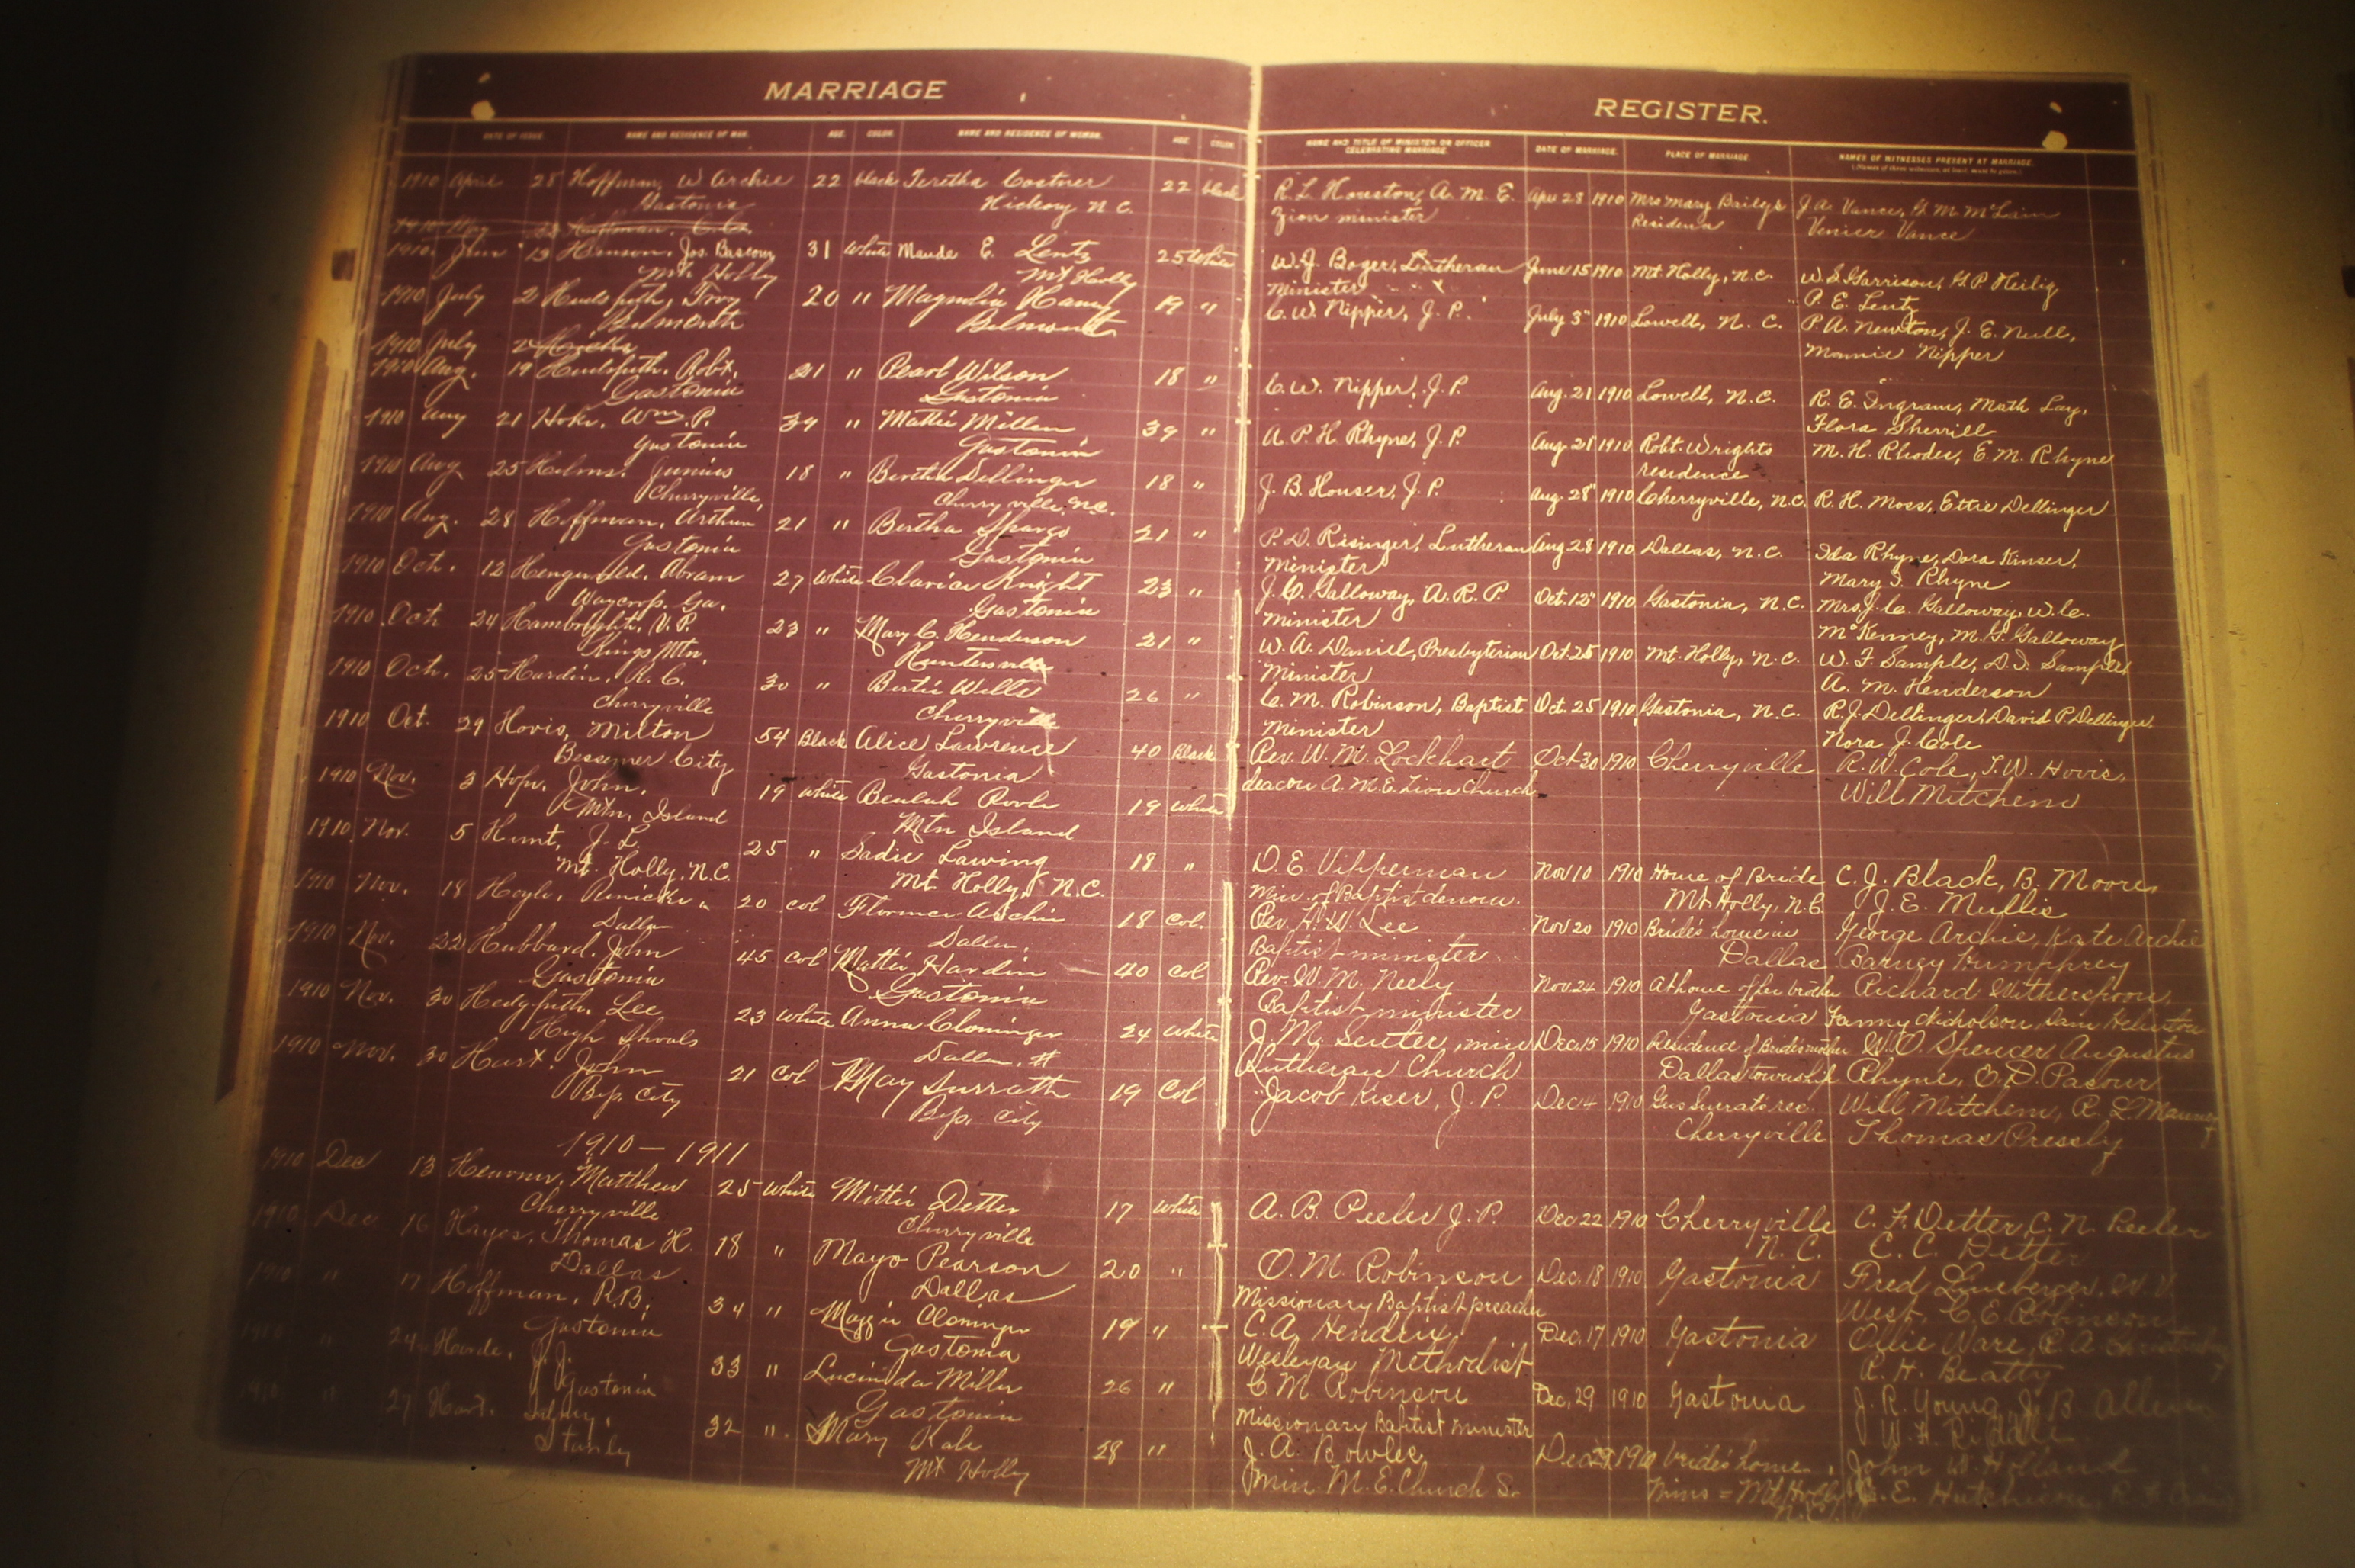 MARRIAGE
REGISTER.
DATE OF ISSUE. NAME AND RESIDENCE OF MAN. AGE. COLOR. NAME AND RESIDENCE OF WOMAN. AGE. COLOR.
NAME AND TITLE OF MINISTER OR OFFICER CELEBRATING MARRIAGE. DATE OF MARRIAGE. PLACE OF MARRIAGE. NAMES OF WITNESSES PRESENT AT MARRIAGE.
1910 April 28 Hoffman, W Archie 22 black Teretha Costner 22 black R. L. Houston, A. M. E. Apr 28 1910 Mrs Mary Baily's J. A. Vance, G. M. McLain
Gastonia Hickory N C. Zion minister Residence Venier Vance
1910 May 23
1910. June 13 Henson, Jos. Bascom 31 White Maude E. Lentz 25 White W. J. Boger, Lutheran June 15 1910 Mt. Holly, N.C. W. S. Garrison, G. P. Heilig
Mt. Holly Mt Holly Minister P. E. Lentz
1910 July 2 Hudspith, Troy 20 " Magnolia 19 " C. W. Nipper, J. P. July 3" 1910 Lowell, N. C. P. A. Newton, J. E. Null,
Belmont Belmont Monnie Nipper
1910 July 2
1910 Aug. 19 Hudspith, Robt. 21 " Pearl Wilson 18 " C. W. Nipper, J. P. Aug. 21 1910 Lowell, N.C. R. E. Ingram, Math Lay,
Gastonia Gastonia Flora Sherrill
1910 Aug 21 Hoke, Wm. P. 39 " Mattie Millen 39 " A. P. H. Rhyne, J. P. Aug 21 1910 Robt. Wrights M. H. Rhodes, E. M. Rhyne
Gastonia Gastonia residence
1910 Aug 25 Helms, Junius 18 " Bertha Dellinger 18 " J. B. Houser, J. P. Aug. 28" 1910 Cherryville, N.C. R. H. Moss, Ettie Dellinger
Cherryville, Cherryville, N.C.
1910 Aug. 28 Hoffman, Arthur 21 " Bertha Spargo 21 " P. D. Risinger, Lutheran Aug 28 1910 Dallas, N.C. Ida Rhyne, Dora Kinser,
Gastonia Gastonia Minister Mary I. Rhyne
1910 Oct. 12 Hengeveld, Abram 27 White Clarice Knight 23 " J. C. Galloway, A. R. P. Oct. 12" 1910 Gastonia, N.C. Mrs J. C. Galloway, W. C.
Waycross, Ga. Gastonia minister McKenney, M. G. Galloway
1910 Oct 24 Hambright, V. P. 23 " Mary C. Henderson 21 " W. A. Daniel, Presbyterian Oct. 25 1910 Mt. Holly, N.C. W. F. Sample, D. I. Sample
Kings Mtn. Huntersville Minister A. M. Henderson
1910 Oct. 25 Hardin, R. C. 30 " Bertie Wells 26 " C. M. Robinson, Baptist Oct. 25 1910 Gastonia, N.C. R. J. Dellinger, David P. Dellinger,
Cherryville Cherryville Minister Nora J. Cole
1910 Oct. 29 Hovis, Milton 54 Black Alice Lawrence 40 Black Rev. W. M. Lockhart Oct 30 1910 Cherryville R. W. Cole, T. W. Hovis,
Bessemer City Gastonia deacon A. M. E. Zion Church Will Mitchem
1910 Nov. 3 Hope, John, 19 White Beulah Poole 19 White
Mtn. Island Mtn Island
1910 Nov. 5 Hunt, J. L. 25 " Sadie Lawing 18 " D. E. Vipperman Nov 10 1910 Home of Bride C. J. Black, B. Moore,
Mt. Holly, N.C. Mt. Holly, N.C. Min. of Baptist denom. Mt Holly, N.C. J. E. Mullis
1910 Nov. 18 Hoyle, Renicke 20 col Florence Archie 18 Col. Rev. H. W. Lee Nov 20 1910 Bride's home in George Archie, Kate Archie
Dallas Dallas, Baptist minister Dallas Barney Humphrey
1910 Nov. 22 Hubbard, John 45 col Mattie Hardin 40 Col Rev. W. M. Neely Nov 24 1910 At home of her brother Richard Witherspoon,
Gastonia Gastonia Baptist minister Gastonia Fanny Nicholson, Sam
1910 Nov. 30 Hedgpith, Lee 23 White Anna Cloninger 24 White J. M. Senter, min Dec. 15 1910 Residence of Bride's mother W. O. Spencer, Augustus
High Shoals Dallas, # Lutheran Church Dallas township Rhyne, O. D. Pasour
1910 Nov. 30 Hart, John 21 Col May Surratt 19 Col Jacob Kiser, J. P. Dec 4 1910 Gus Surrats res. Will Mitchem, R. L. Mauney
Bess. City Bess. City Cherryville Thomas Pressly
1910 – 1911
1910 Dec 13 Heavner, Matthew 25 White Mittie Detter 17 White A. B. Peeler J. P. Dec 22 1910 Cherryville C. F. Detter, C. N. Peeler
Cherryville Cherryville N. C. C. C. Detter
1910 Dec 16 Hayes, Thomas H. 18 " Mayo Pearson 20 " O. M. Robinson Dec. 18 1910 Gastonia Fred Lineberger, W. V.
Dallas Dallas Missionary Baptist preacher West, C. E. Robinson
1910 " 17 Hoffman, R. B. 34 " Maggie Cloninger 19 " C. A. Hendrix, Dec. 17 1910 Gastonia Ollie Ware, R. A.
Gastonia Gastonia Wesleyan Methodist R. H. Beatty
1910 " 24 Houde, J. J. 33 " Lucinda Miller 26 " C. M. Robinson Dec. 29 1910 Gastonia J. R. Young, J. B. Allen
Gastonia Gastonia Missionary Baptist Minister W. H. Riddle
1910 " 27 Hart, Sidney, 32 " Mary Kale 28 " J. A. Bowles Dec 29 1910 bride's home John W. Holland
Stanly Mt Holly Min. M. E. Church S. Mins = Mt Holly E. Hutchison,
N.C.